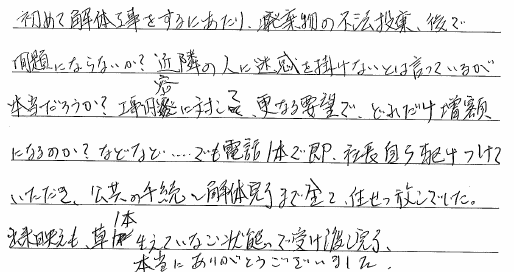 初めて解体工事をするにあたり、廃棄物の不法投棄、後で
問題にならないか？近隣の人に迷惑を掛けないとは言っているが
本当だろうか？工事内容に対する更なる要望で、どれだけ増額
になるのか？などなど……でも電話1本で即、社長自ら駆けつけて
いただき、公共の手続〜解体完了まで全て、任せっ放しでした。
出来映えも、草1本生えていない状態で受け渡し完了、
本当にありがとうございました。